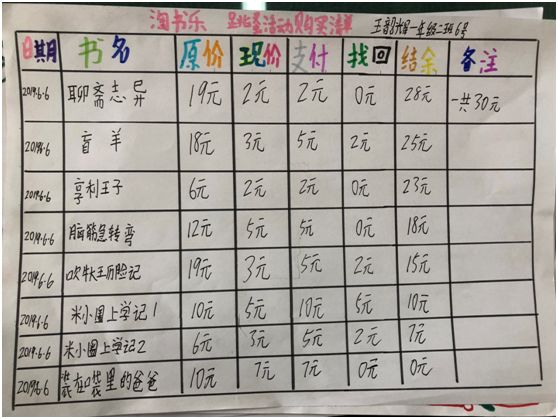 淘书乐 跳蚤活动购买清单 王韶熠一年级二班6号
日期 书名 原价 现价 支付 找回 结余 备注
2019.6.6 聊斋志异 19元 2元 2元 0元 28元 一共30元
2019.6.6 盲羊 18元 3元 5元 2元 25元
2019.6.6 亨利王子 6元 2元 2元 0元 23元
2019.6.6 脑筋急转弯 12元 5元 5元 0元 18元
2019.6.6 吹牛大王历险记 19元 3元 5元 2元 15元
2019.6.6 米小圈上学记1 10元 5元 10元 5元 10元
2019.6.6 米小圈上学记2 6元 3元 5元 2元 7元
2019.6.6 装在口袋里的爸爸 10元 7元 7元 0元 0元